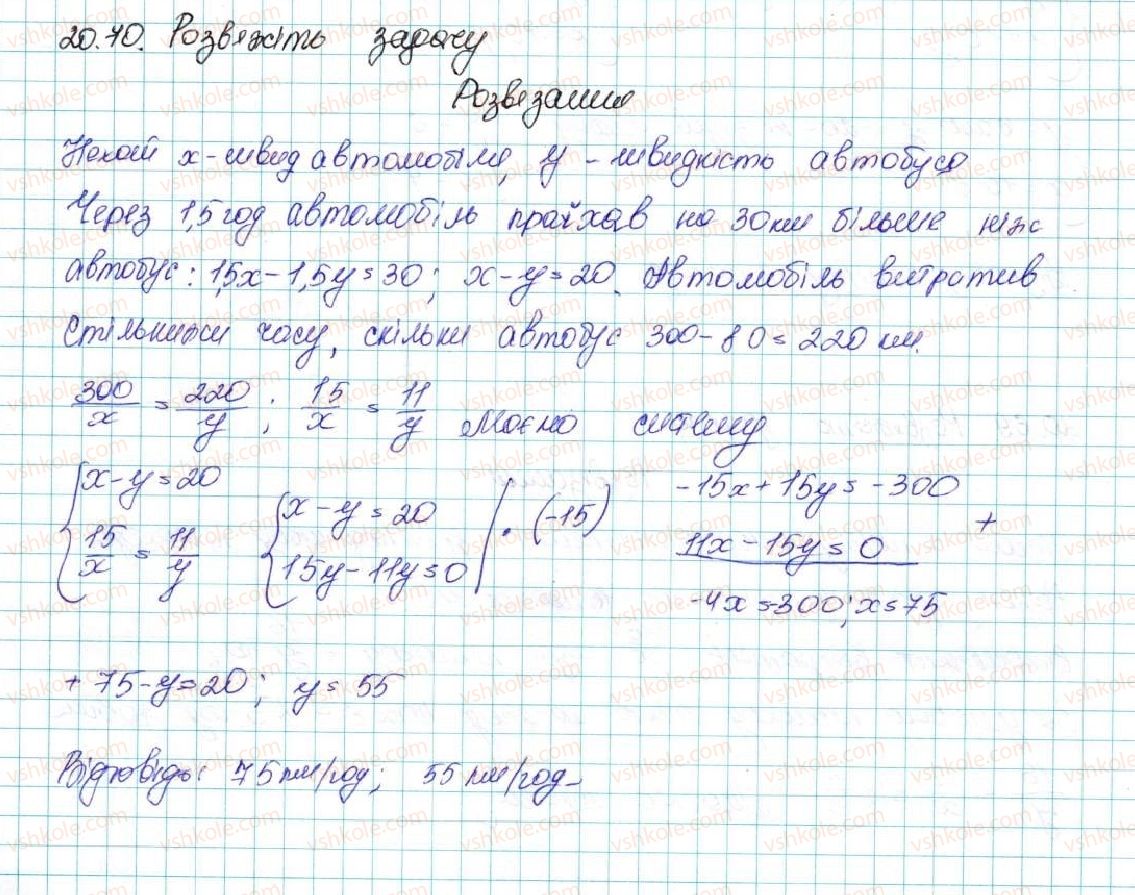 20.70. Розвяжіть задачу
Розвязання
Нехай x - швид автомобіля, y - швидкість автобуса
Через 1,5 год автомобіль проїхав на 30 км більше ніж
автобус: 1,5x - 1,5y = 30; x - y = 20. Автомобіль витратив
стільки часу, скільки автобус 300 - 80 = 220 км.
300/x = 220/y; 15/x = 11/y Маємо систему
{x - y = 20 {x - y = 20 | · (-15) -15x + 15y = -300
15/x = 11/y 15y - 11y = 0 11x - 15y = 0 +
-4x = -300; x = 75
+ 75 - y = 20; y = 55
Відповідь: 75 км/год; 55 км/год